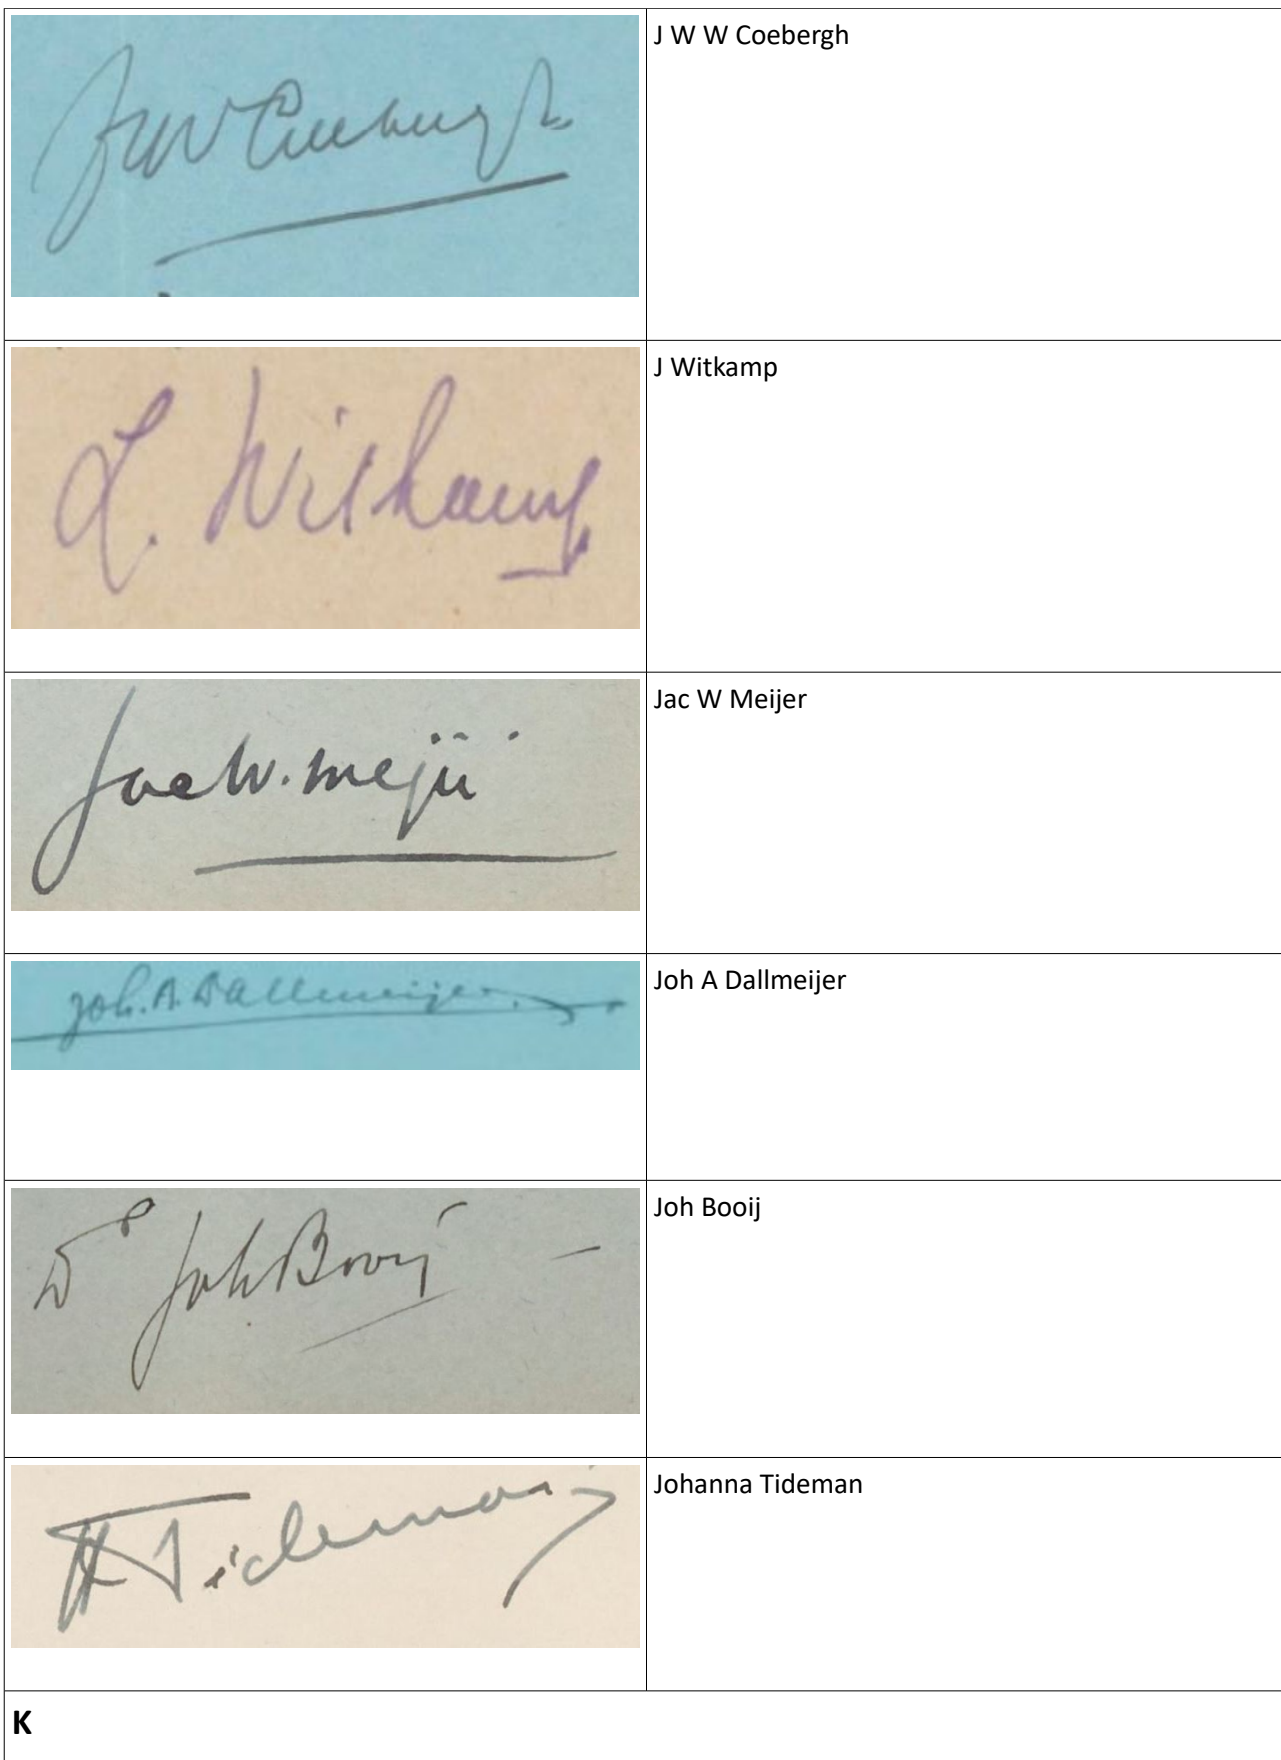 JWW Coebergh
J W W Coebergh
L. Witkamp
J Witkamp
Jac W. Meijer
Jac W Meijer
Joh. A. Dallmeijer.
Joh A Dallmeijer
Dr Joh Booij
Joh Booij
Tideman
Johanna Tideman
K